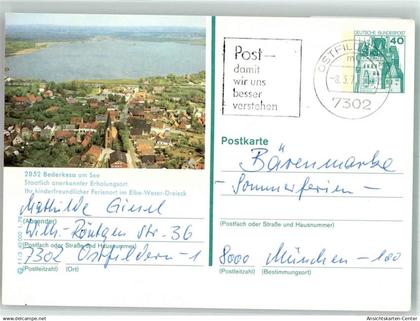 Post –
damit
wir uns
besser
verstehen
OSTFILDERN
-8.5.7
7302
DEUTSCHE BUNDESPOST
40
2852 Bederkesa am See
Staatlich anerkannter Erholungsort
Ihr kinderfreundlicher Ferienort im Elbe-Weser-Dreieck
Mathilde Giesel
(Absender)
Wilh.-Röntgen Str. 36
(Postfach oder Straße und Hausnummer)
7302 Ostfildern-1
(Postleitzahl) (Ort)
Postkarte
Bärenmarke
- Sommerferien -
(Postfach oder Straße und Hausnummer)
8000 München-100
(Postleitzahl) (Bestimmungsort)
AnsichtsKarten-Center